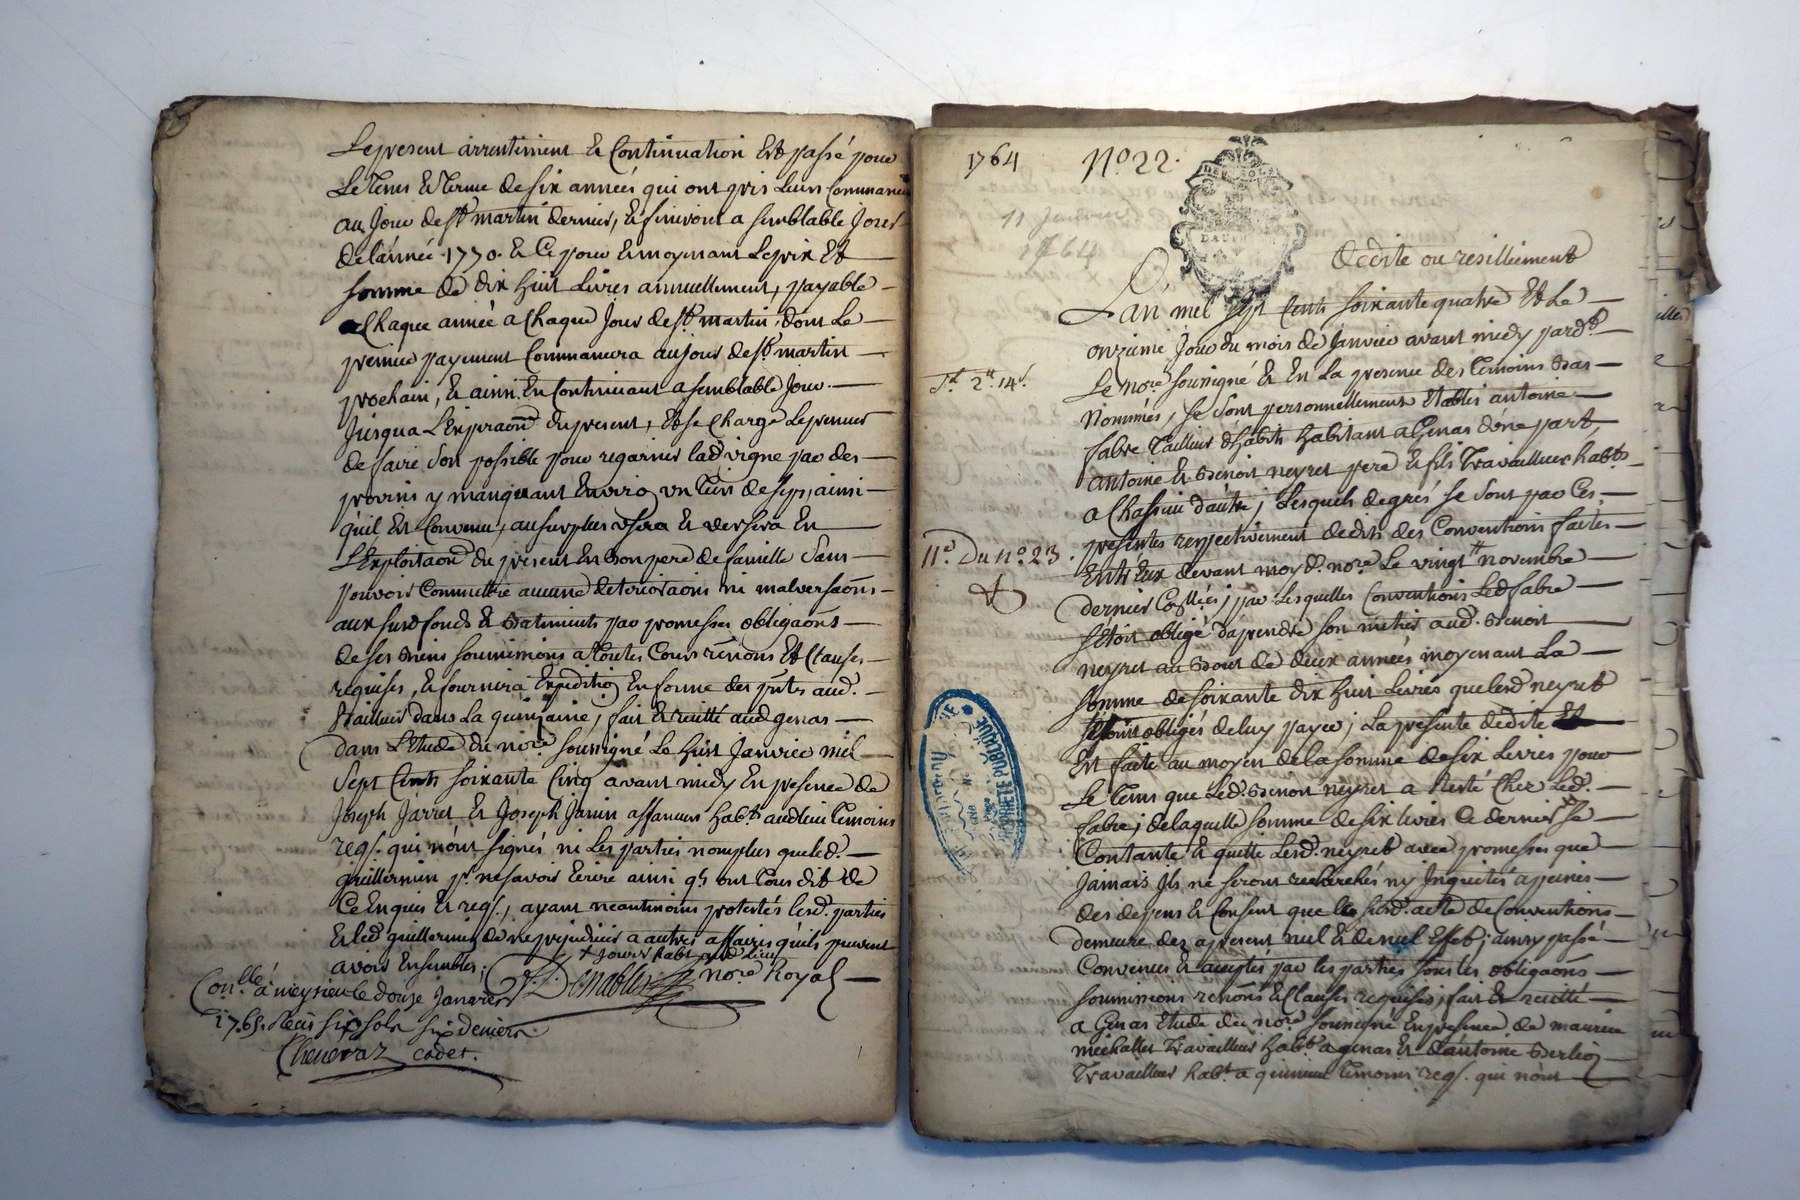 Le present arrentiment & Continuation Est passé pour
Le Tems & Terme de six années qui ont pris Leur Commance
au Jour de st martin dernier, & finiront a semblable Jour
de l'année 1770. & Ce pour & moyenant Le prix Et
somme de dix huit Livres annuellement, payable
Chaque année a Chaque Jour de st martin, dont Le
premier payement Commancera au Jour de st martin
prochain, & ainsi En Continuant a semblable Jour
Jusqua L'Expiraon du present, Et se Charge Le preneur
de faire son possible pour regarnir lad vigne par des
provins y manquant Environ un Tiers de seps, ainsi
qu'il Est Convenu, au surplus usera & versera En
L'Exploitaon du present En Bon pere de famille sans
pouvoir Commettre aucune deterioraons ni malversaons
aux susd fonds & Batiments par promesses obligaons
de ses Biens soumissions a Toutes Cours renons Et Clauses
requises, & fournira Expedition En forme des pntes aud.
Bailleur dans La quinzaine, fait & recitté aud genas
dans L'Etude du nore soussigné Le huit Janvier mil
sept Cents soixante Cinq avant midy En presence de
Joseph Jarret & Joseph Janin affaneurs habts aud lieu Temoins
req. qui n'ont signés ni Les parties non plus que led.
guillermin pr. ne savoir Ecrire ainsi qls ont Tous dit de
Ce Enquis & req., ayant neantmoins protestés lesd. parties
& led guillermin de ne prejudicier a autres affaires qu'ils peuvent
avoir Ensembles.
nore Royal
Conllé a meyzieu le douze Janvier
1765. Recu six sols six deniers.
Chenevaz cadet.
1764 No. 22.
11 Janvier
1764
DAUP
Dedite ou resilliement
L'an mil sept Cents soixante quatre Et Le
onzieme Jour du mois de Janvier avant midy pardt
Le nore soussigné & En La presence des Temoins Bas
Nommés, se sont personnellement Etablis antoine
fabre Tailleur d'habits habitant a Genas d'une part,
antoine & Benoit neyret pere & fils Travailleurs habts
a Chassieu d'autre, Lesquels de grés se sont par Ces
presentes respectivement dedits des Conventions faites
Entr'Eux devant moy d. nore Le vingt novembre
dernier Conllées, par Lesquelles Conventions Led fabre
s'Etoit obligé d'aprendre son metier aud. Benoit
neyret au Bout de deux années moyenant La
somme de soixante dix huit Livres que lesd neyret
s'Etoient obligés de luy payer, La presente dedite
Est faite au moyen de la somme de six Livres pour
Le Tems que Led. Benoit neyret a Resté Chez Led.
fabre, de laquelle somme de six livres Ce dernier se
Contante & quitte Lesd. neyret avec promesses que
Jamais Ils ne seront recherchés ny Inquietés a peines
des depens & Consent que Le susd. acte de Conventions
demeure dez apresent nul & de nul Effet, ainsy passé
Convenus & acceptés par les parties sous les obligaons
soumissions renons & Clauses requises, fait & recitté
a Genas Etude du nore soussigné En presence de maurice
michallet Travailleur habt a genas & d'antoine Berlioz
Travailleur habt. a temoins req. qui n'ont
st 2ll. 14s.
Nd. Du no. 23.
PROPRIETE PUBLIQUE